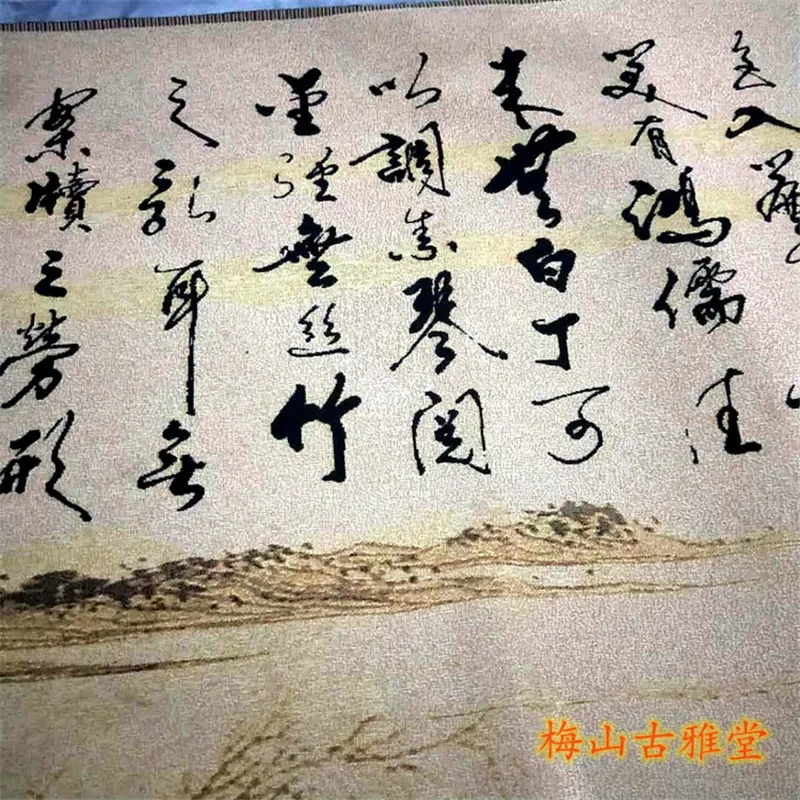 色入簾
笑有鴻儒往
来無白丁可
以調素琴閲
金經無絲竹
之亂耳無
案牘之勞形
梅山古雅堂